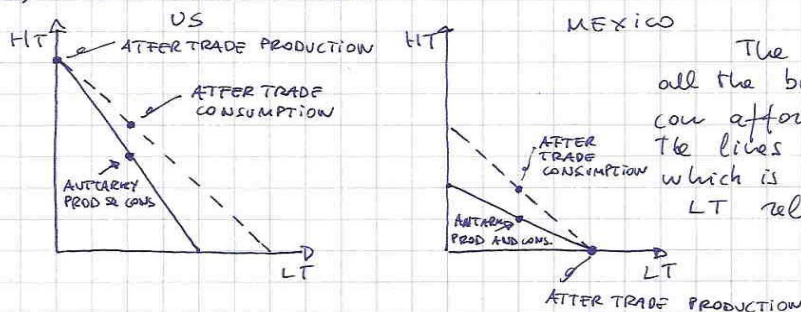 US
HT
ATFER TRADE PRODUCTION
ATFER TRADE
CONSUMPTION
AUTTARKY
PROD & CONS
LT
MEXICO
HT
AFTER
TRADE
CONSUMPTION
ANTARKY
PROD AND CONS.
LT
ATTER TRADE PRODUCTION
The
all the b
can affor
The lines
which is
LT rel